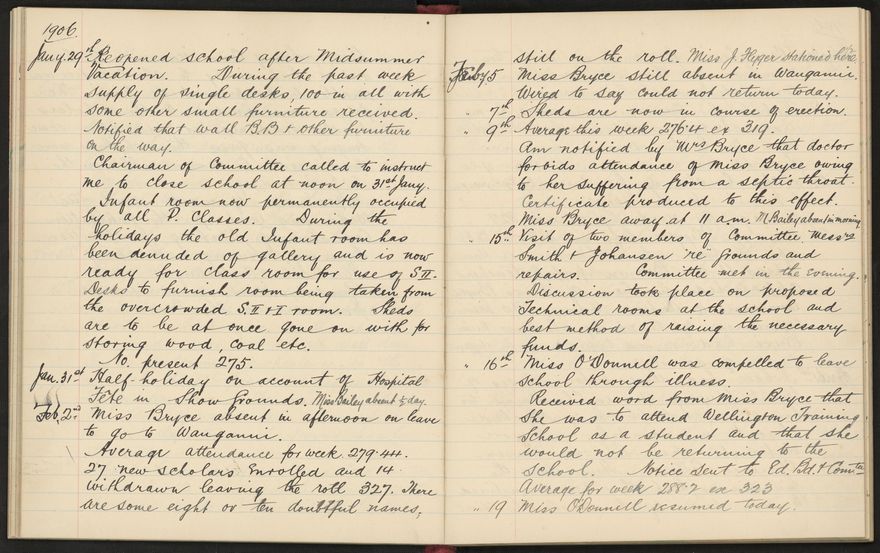 1906.
Jany. 29th Reopened school after Midsummer
Vacation. During the past week
supply of single desks, 100 in all with
some other small furniture received.
Notified that wall B.B & other furniture
on the way.
Chairman of Committee called to instruct
me to close school at noon on 31st Jany.
Infant room now permanently occupied
by all P. Classes. During the
holidays the old Infant room has
been denuded of gallery and is now
ready for class room for use of S.II.
Desks to furnish room being taken from
the overcrowded S.II & I room. Sheds
are to be at once gone on with for
storing wood, coal etc.
No. present 275.
Jan. 31st Half-holiday on account of Hospital
Fête in Show Grounds. Miss Bailey absent ½ day.
Feb. 2nd Miss Bryce absent in afternoon on leave
to go to Wanganui.
Average attendance for week 279.44.
27 new scholars enrolled and 14
withdrawn leaving the roll 327. There
are some eight or ten doubtful names,
still on the roll. Miss J. stationed here.
Feby 5 Miss Bryce still absent in Wanganui.
Wired to say could not return today.
" 7th Sheds are now in course of erection.
" 9th Average this week 276.4 ex 319.
Am notified by Mrs Bryce that doctor
forbids attendance of Miss Bryce owing
to her suffering from a septic throat.
Certificate produced to this effect.
Miss Bryce away at 11 a.m. M Bailey absent in morning
" 15th Visit of two members of Committee, Messrs
Smith & Johansen 're' grounds and
repairs. Committee met in the evening.
Discussion took place on proposed
Technical rooms at the school and
best method of raising the necessary
funds.
" 16th Miss O'Donnell was compelled to leave
school through illness.
Received word from Miss Bryce that
she was to attend Wellington Training
School as a student and that she
would not be returning to the
School. Notice sent to Ed. Bd. & Comtee
Average for week 288.2 ex 323
" 19 Miss O'Donnell resumed today.